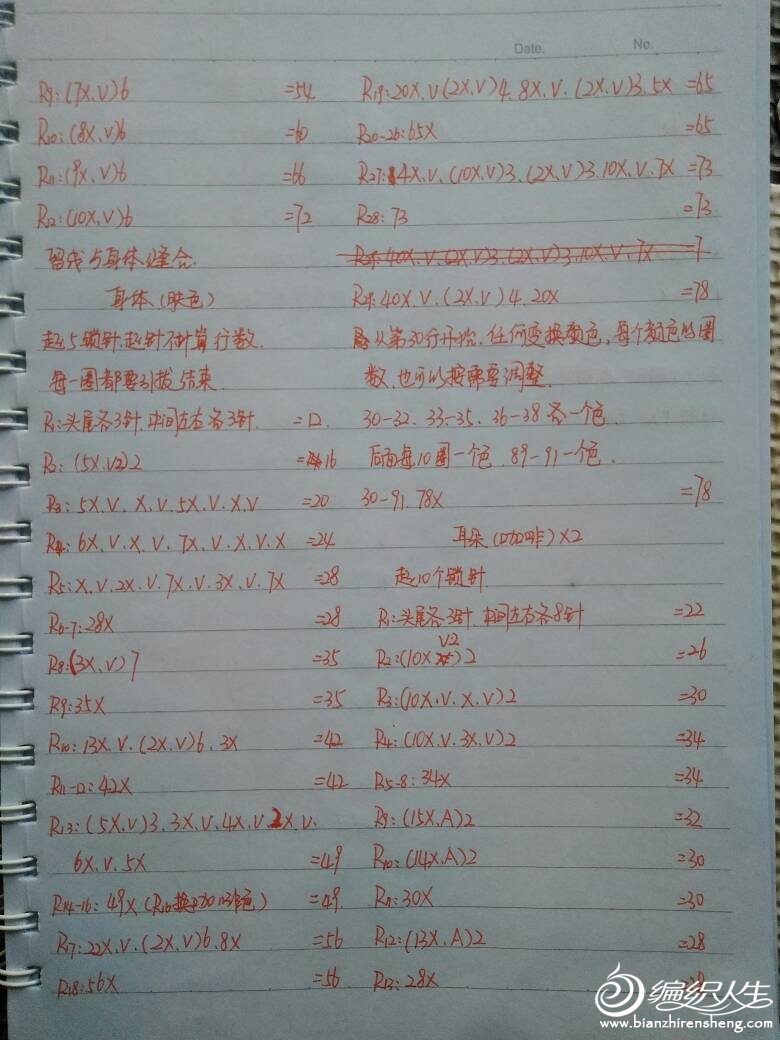 Date. No.
R9:(7X.V)6 =54
R10:(8X.V)6 =60
R11:(9X.V)6 =66
R12:(10X.V)6 =72
留线与身体缝合.
身体(肤色)
起5锁针.起针不计算行数.
每一圈都要引拔结束
R1:头尾各3针.中间左右各3针. =12
R2:(5X.V2)2 =16
R3:5X.V.X.V.5X.V.X.V =20
R4:6X.V.X.V.7X.V.X.V.X =24
R5:X.V.2X.V.7X.V.3X.V.7X =28
R6-7:28X =28
R8:(3X.V)7 =35
R9:35X =35
R10:13X.V.(2X.V)6.3X =42
R11-12:42X =42
R13:(5X.V)3.3X.V.4X.V.2X.V.
6X.V.5X =49
R14-16:49X(R16换咖啡色) =49
R17:22X.V.(2X.V)6.8X =56
R18:56X =56
R19:20X.V(2X.V)4.8X.V.(2X.V)3.5X =65
R20-26:65X =65
R27:14X.V.(10X.V)3.(2X.V)3.10X.V.7X =73
R28:73 =73
40X.V.(2X.V)3.(2X.V)3.10X.V.7X =7
R29:40X.V.(2X.V)4.20X =78
从第30行开始.任何变换颜色,每个颜色的圈
数,也可以按需要调整.
30-32.33-35.36-38各一个色.
后面每10圈一个色.89-91一个色.
30-91.78X =78
耳朵(咖啡)X2
起10个锁针
R1:头尾各3针.中间左右各8针 =22
R2:(10X V2)2 =26
R3:(10X.V.X.V)2 =30
R4:(10X.V.3X.V)2 =34
R5-8:34X =34
R9:(15X.A)2 =32
R10:(14X.A)2 =30
R11:30X =30
R12:(13X.A)2 =28
R13:28X
编织人生
www.bianzhirensheng.com